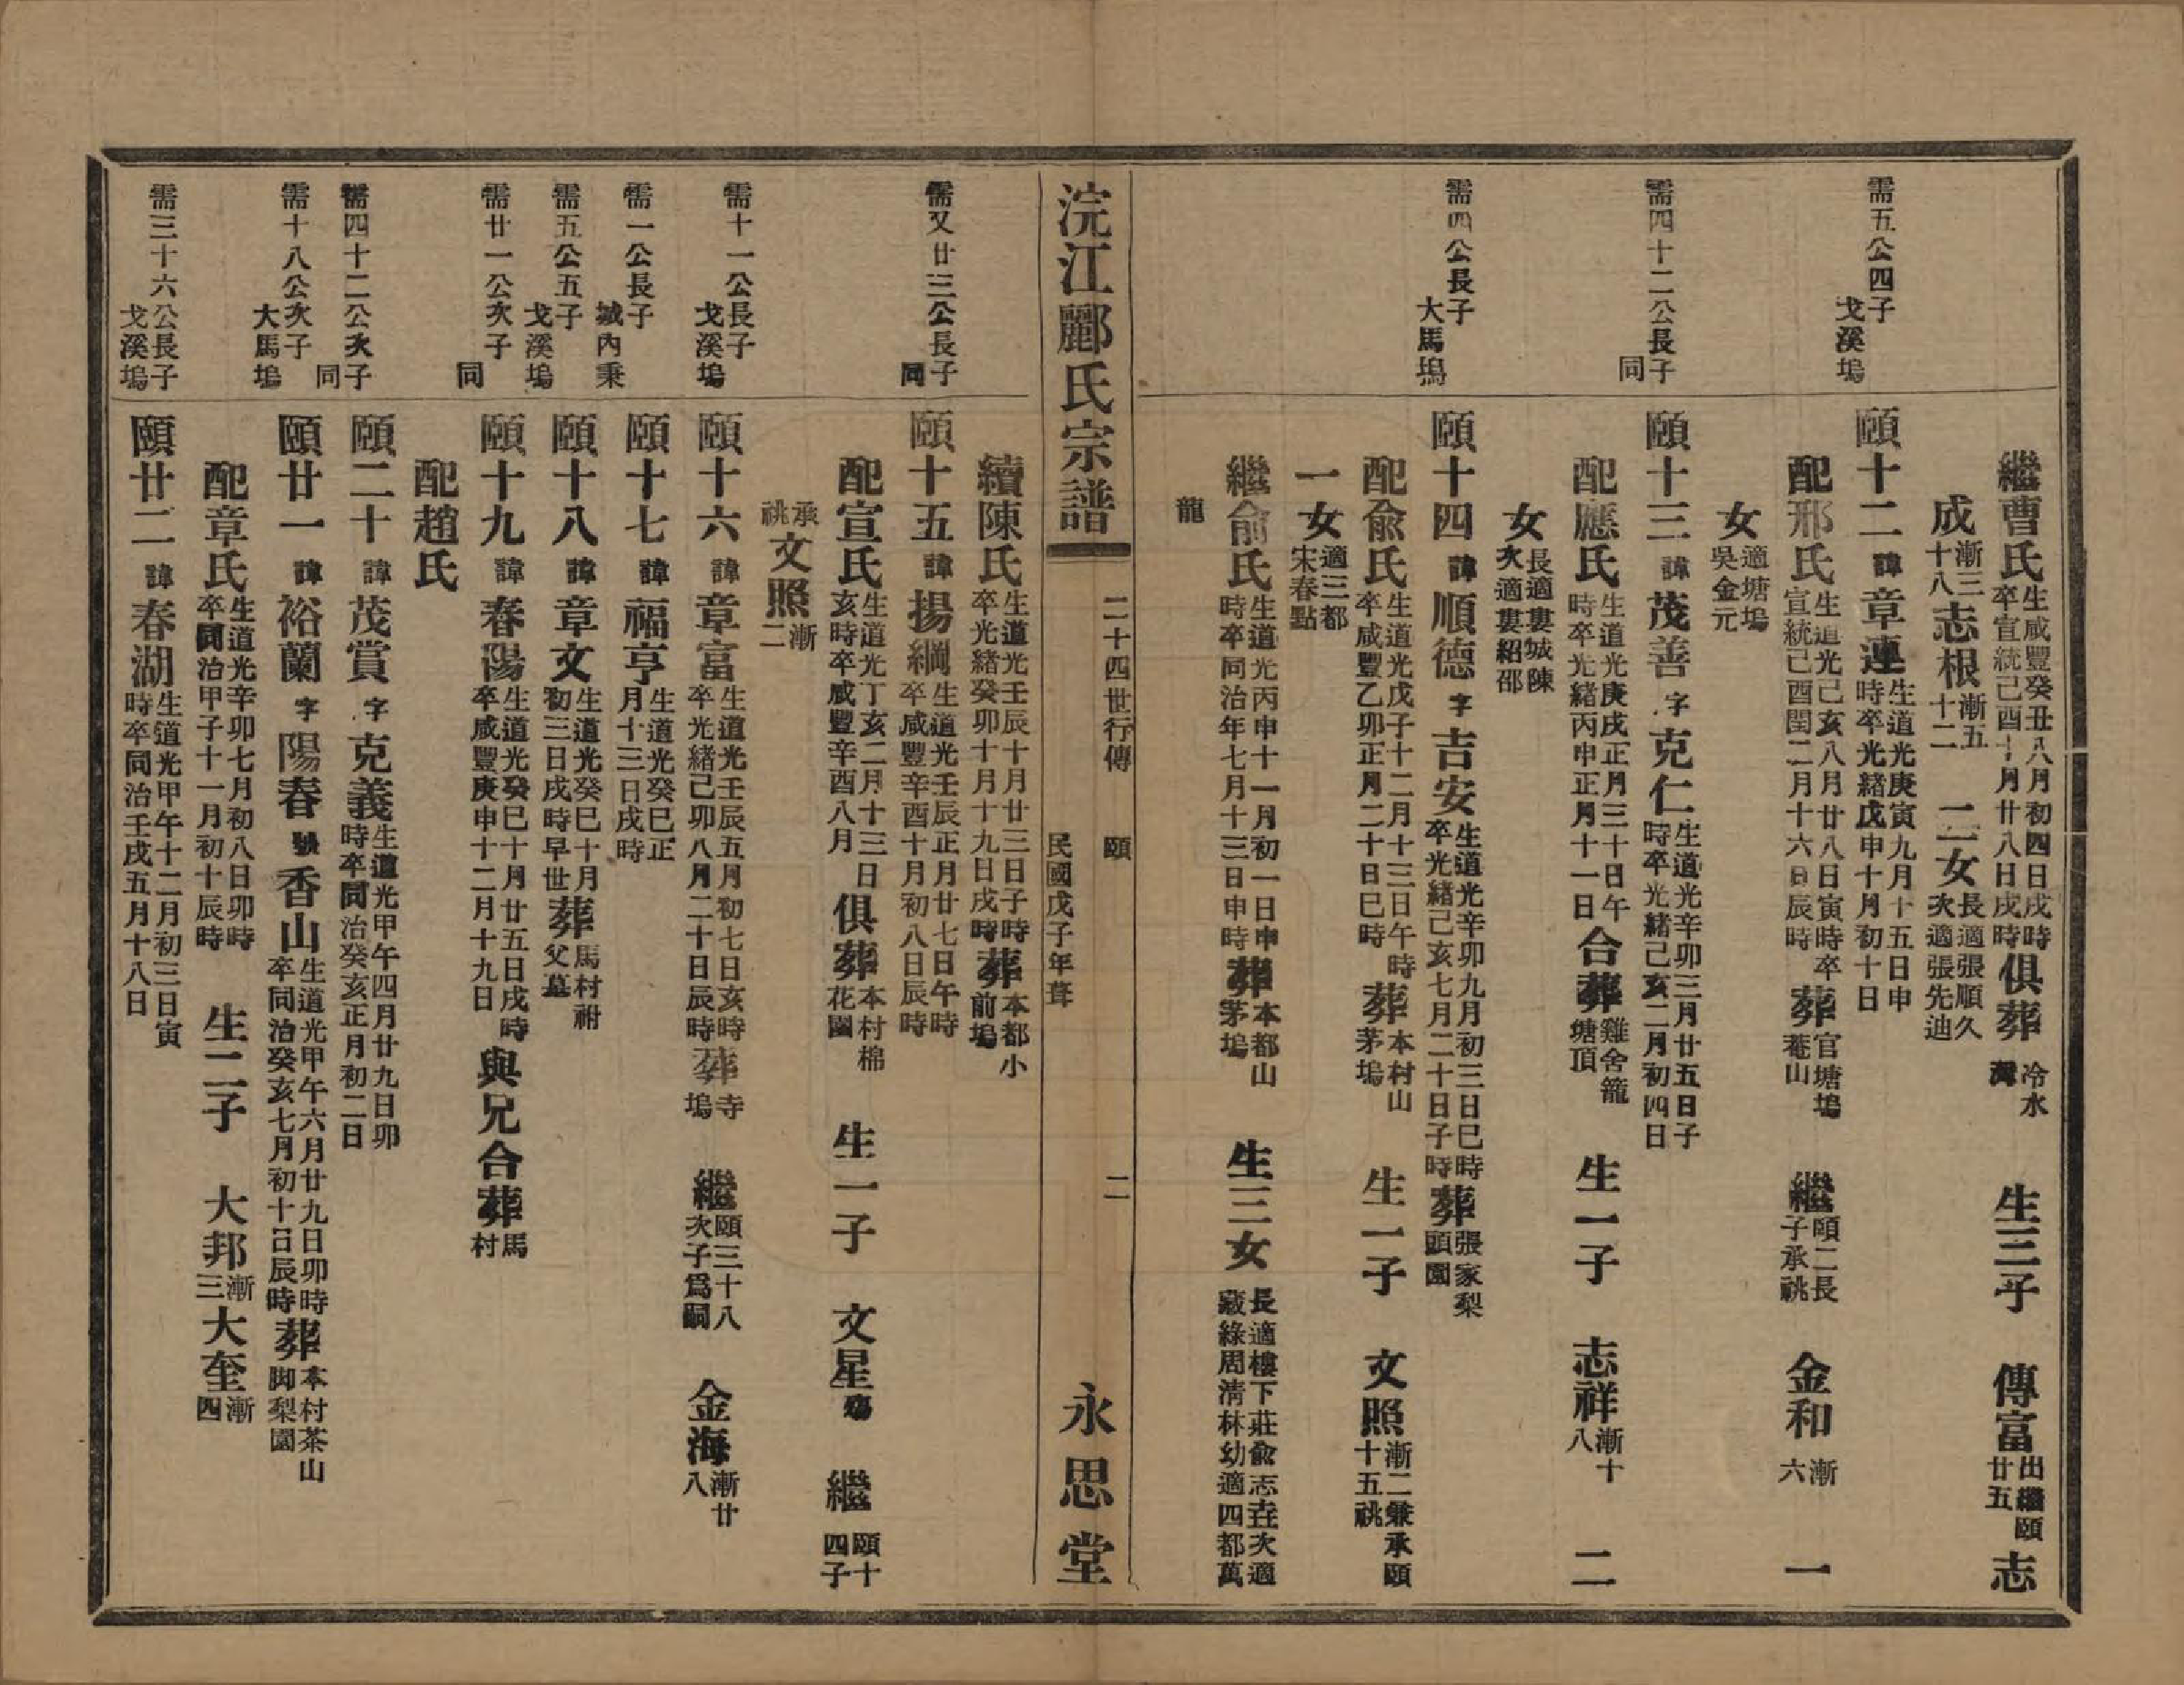 繼曹氏生咸豐癸丑八月初四日戌時卒宣統己酉十月廿八日戌時俱葬冷水灣 生三子 傳富出繼頤廿五志
成漸三十八志根漸五十二 二女長適張順久次適張先迪
需五公四子戈溪塢
頤十二諱章連生道光庚寅九月十五日申時卒光緒戊申十月初十日
配邢氏生道光己亥八月廿八日寅時卒宣統己酉閏二月十六日辰時葬官塘塢菴山 繼頤二長子承祧 金和漸六 一
女適塘塢吳金元
需四十二公長子同
頤十三諱茂善字克仁生道光辛卯三月廿五日子時卒光緒己亥二月初四日
配應氏生道光庚戌正月三十日午時卒光緒丙申正月十一日合葬雞舍籠塘頂 生一子 志祥漸十八 二
女長適婁城陳次適婁紹邵
需四公長子大馬塢
頤十四諱順德字吉安生道光辛卯九月初三日巳時卒光緒己亥七月二十日子時葬張家梨頭園
配俞氏生道光戊子十二月十三日午時卒咸豐乙卯正月二十日巳時葬本村山茅塢 生一子 文照漸二兼承頤十五祧
一女適三都宋春點
繼俞氏生道光丙申十一月初一日申時卒同治年七月十三日申時葬本都山茅塢 生三女長適樓下莊俞志壵次適藏綠周清林幼適四都萬
龍
浣江酈氏宗譜 二十四世行傳 頤 民國戊子年葺 二 永思堂
續陳氏生道光壬辰十月廿三日子時卒光緒癸卯十月十九日戌時葬本都小前塢
需又廿三公長子同
頤十五諱揚綱生道光壬辰正月廿七日午時卒咸豐辛酉十月初八日辰時
配宣氏生道光丁亥二月十三日亥時卒咸豐辛酉八月俱葬本村棉花園 生一子 文星殤 繼頤十四子
承祧文照漸二
需十一公長子戈溪塢
頤十六諱章富生道光壬辰五月初七日亥時卒光緒己卯八月二十日辰時葬寺塢 繼頤三十八次子爲嗣 金海漸廿八
需一公長子城內秉
頤十七諱福亨生道光癸巳正月十三日戌時
需五公五子戈溪塢
頤十八諱章文生道光癸巳十月初三日戌時早世葬馬村祔父墓
需廿一公次子同
頤十九諱春陽生道光癸巳十月廿五日戌時卒咸豐庚申十二月十九日與兄合葬馬村
配趙氏
需四十二公次子同
頤二十諱茂賞字克義生道光甲午四月廿九日卯時卒同治癸亥正月初二日
需十八公次子大馬塢
頤廿一諱裕蘭字陽春號香山生道光甲午六月廿九日卯時卒同治癸亥七月初十日辰時葬本村茶山脚梨園
配章氏生道光辛卯七月初八日卯時卒同治甲子十一月初十辰時 生二子 大邦漸三大奎漸四
需三十六公長子戈溪塢
頤廿二諱春湖生道光甲午十二月初三日寅時卒同治壬戌五月十八日